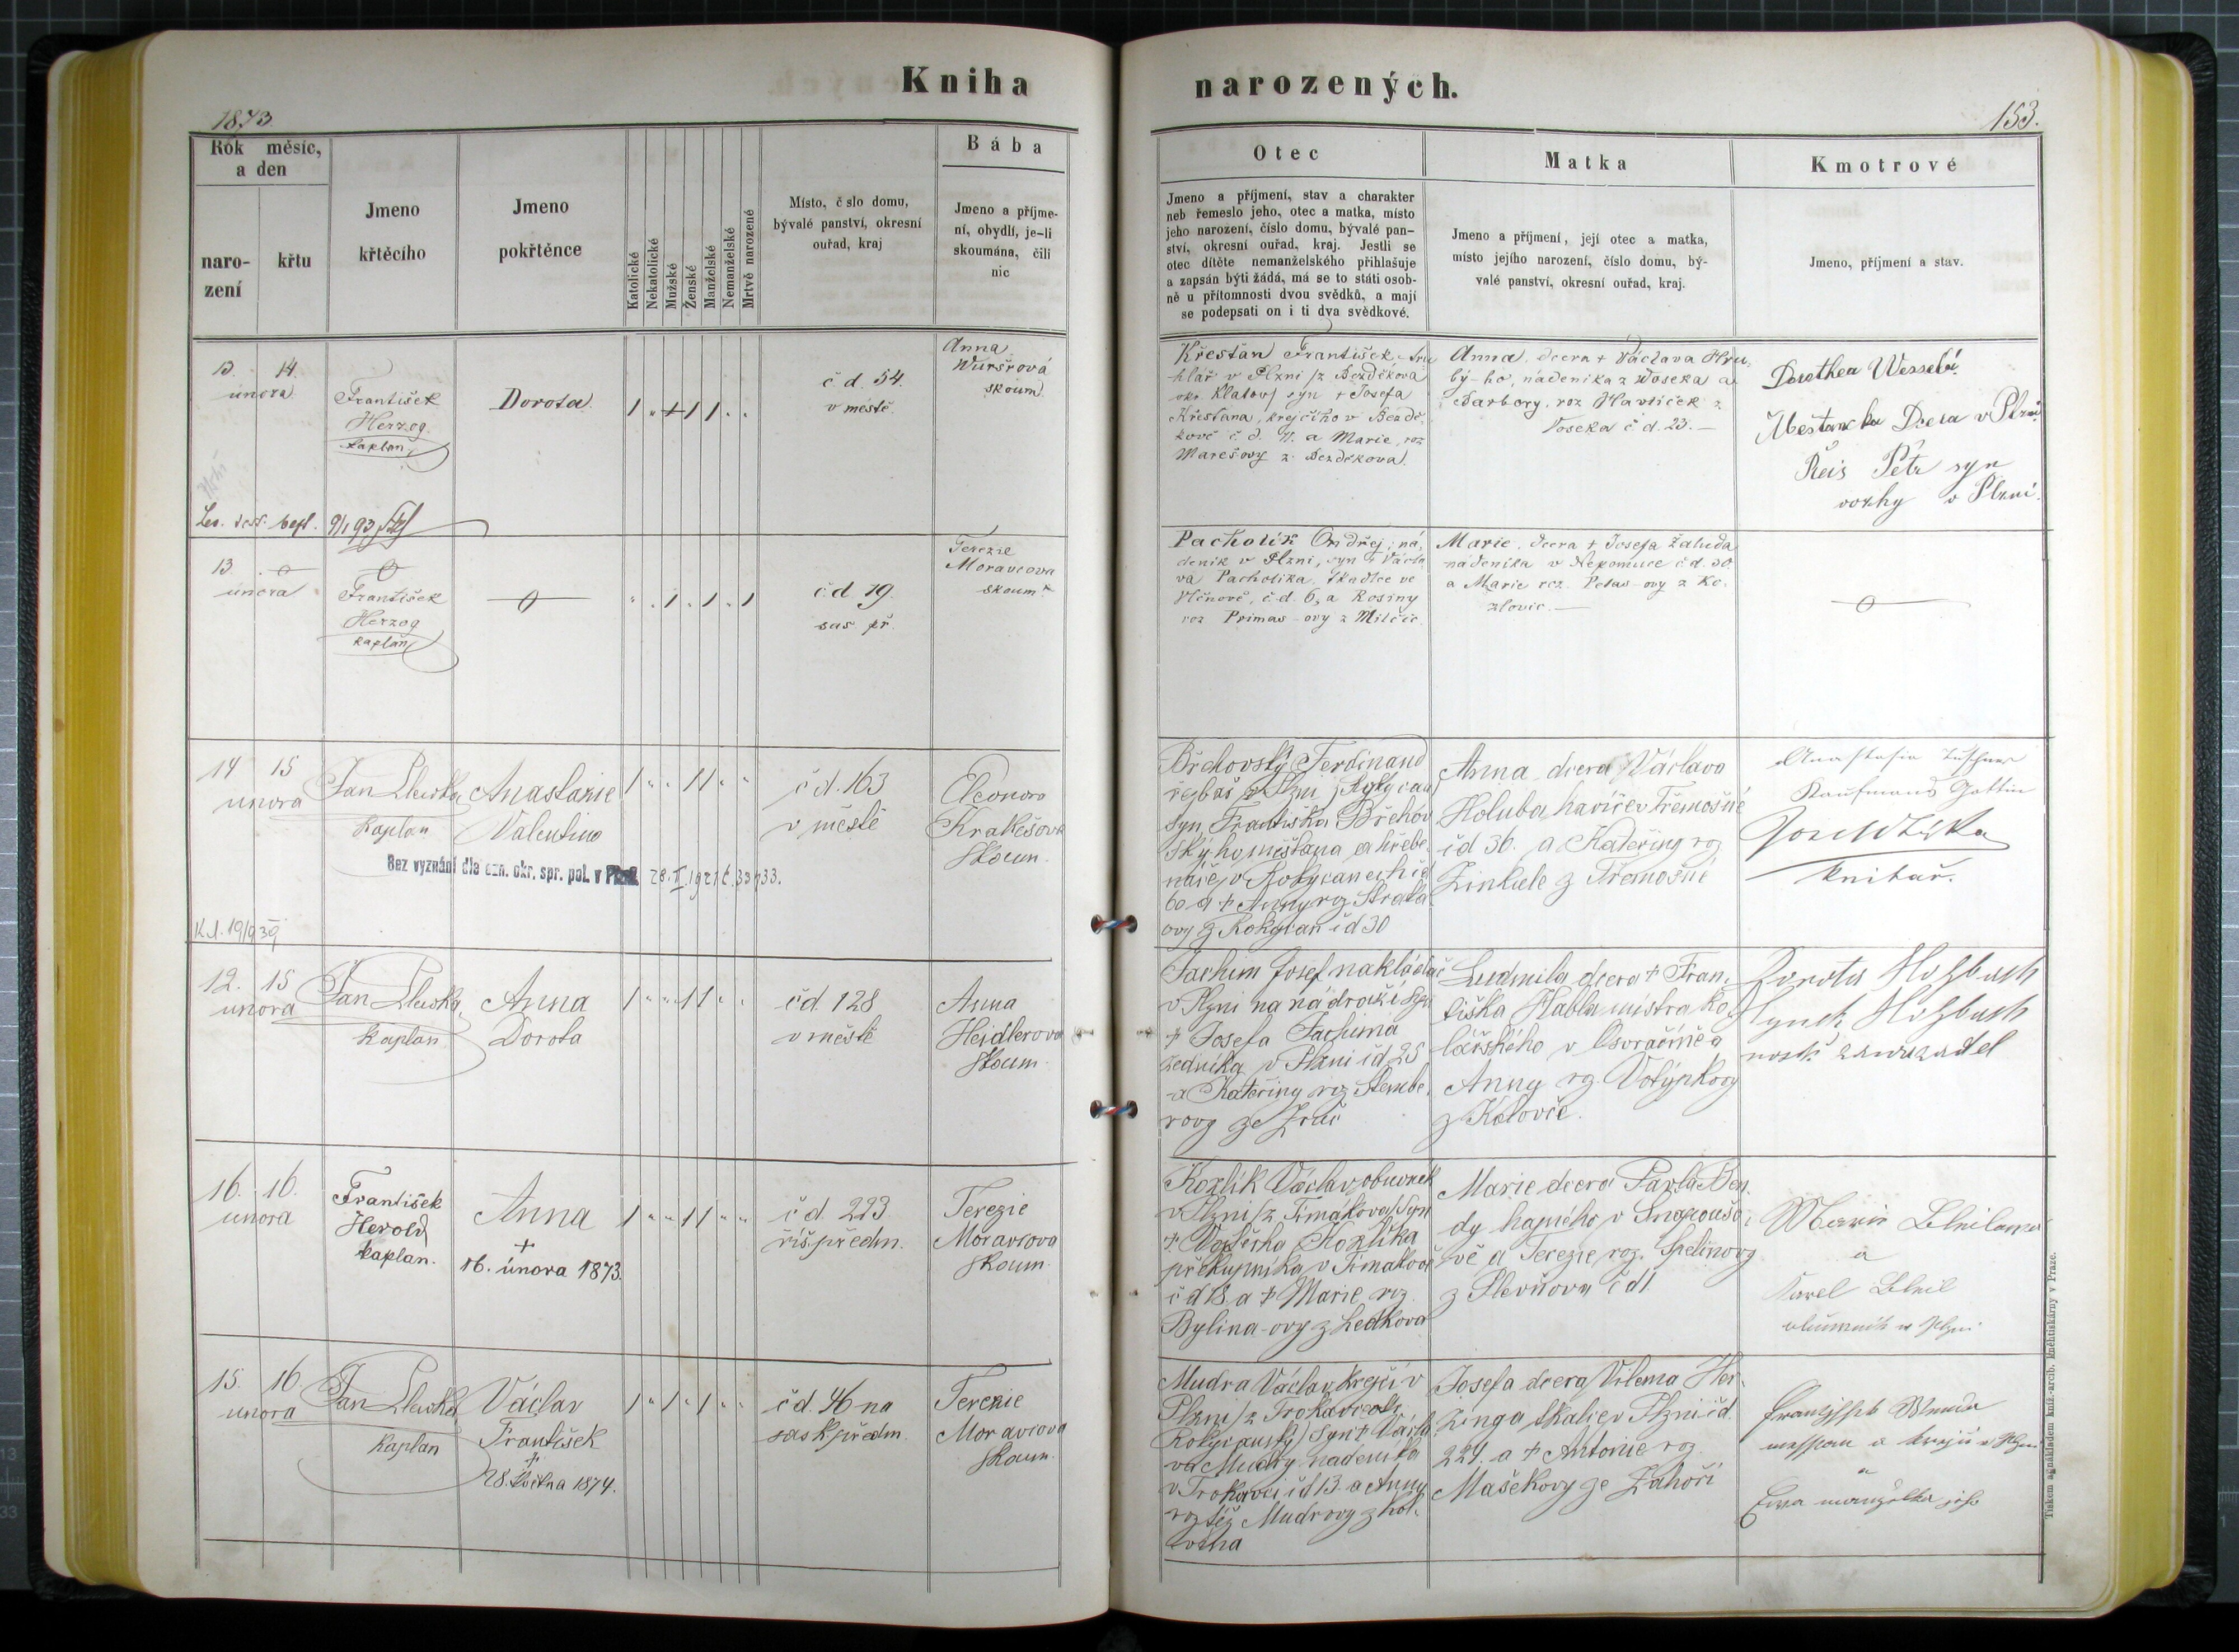 Kniha narozených.
1873
153.
Rok měsíc,
a den
naro-
zení
křtu
Jmeno
křtěcího
Jmeno
pokřtěnce
Katolické
Nekatolické
Mužské
Ženské
Manželské
Nemanželské
Mrtvě narozené
Místo, č slo domu,
bývalé panství, okresní
ouřad, kraj
Bába
Jmeno a příjme-
ní, obydlí, je-li
skoumána, čili
nic
Otec
Jmeno a příjmení, stav a charakter
neb řemeslo jeho, otec a matka, místo
jeho narození, číslo domu, bývalé pan-
ství, okresní ouřad, kraj. Jestli se
otec dítěte nemanželského přihlašuje
a zapsán býti žádá, má se to státi osob-
ně u přítomnosti dvou svědků, a mají
se podepsati on i ti dva svědkové.
Matka
Jmeno a příjmení, její otec a matka,
místo jejího narození, číslo domu, bý-
valé panství, okresní ouřad, kraj.
Kmotrové
Jmeno, příjmení a stav.
13. 14.
února
František
Herzog
kaplan
Dorota
č d. 54.
v městě
Anna
skoum.
Křesťan František tru-
hlář v Plzni /z Bezděkova
okr. Klatov/ syn + Josefa
Křesťana, krejčího v Bezdě-
kově č d. a Marie, roz
Marešovy z Bezděkova.
Anna, dcera + Václava Hru-
bý-ho, nádeníka z Woseka a
Barbory, roz Havlíček z
Voseka č d. 23. —
Dorothea
Dcera v Plzni
Reis Petr syn
v Plzni.
9/1 93
13
února
František
Herzog
kaplan
č d 19.
sas př.
Terezie
Moravcova
skoum.
Pacholík Ondřej, ná-
deník v Plzni, syn + Václa-
va Pacholíka, tkadlce ve
Vlčnově, č.d. 6, a Rosiny
roz Primas-ovy z Milčic
Marie, dcera + Josefa Žaluda
nádeníka v Nepomuce č d. 30
a Marie roz. -ovy z Ko-
zlovic. —
14 15
února
Jan
Kaplan
Anastasie
Valentina
č d. 163
v městě
Eleonora
Krakešova
Skoum.
Bez vyznání dle ozn. okr. spr. pol. v Plzni 28. I 1921 č. 33433.
19/9 39
Břehovský Ferdinand
v Plzni /Rokycan/
syn Františka Břehov
ského měšťana a hřebe-
náře v Rokycanech čd
60 a + Anny roz Straka
ovy z Rokycan č d 30
Anna dcera Václava
Holuba havíře v Třemošné
čd 36. a Kateřiny roz
z Třemošné
Anastasia
Kaufmanns Gattin
knihař.
12. 15
února
Jan
Kaplan
Anna
Dorota
č d 128
v městě
Anna
Heidlerova
Skoum
Jachim Josef nakládač
v Plzni na nádraží syn
+ Josefa Jachima
zedníka v Plzni č d 25
a Kateřiny roz Štembe-
rovy ze Zruč
Ludmila dcera + Fran-
tiška Habla mistra ko-
lářského v Osvračíně a
Anny roz. Votýpkovy
z Koloveče.
Dorota Holzbach
Hynek Holzbach
16. 16.
února
František
Herold
kaplan.
Anna
+
16. února 1873.
č d. 223
říš. předm.
Terezie
Moravcova
Skoum.
Kozlik Václav obuvník
v Plzni /z Timákova/ syn
+ Vojtěcha Kozlíka
překupníka v Timákově
č d 18. a + Marie roz
Bylina-ovy z Letkova
Marie dcera Pavla Ben-
dy hajného v Snopouso-
vě a Terezie roz. Spelinovy
z Plevňova č d 1.
Marie
a
Karel
v Plzni
15. 16
února
Jan
Kaplan
Václav
František
+
28. května 1874.
č d. 46 na
sask předm.
Terezie
Moravcova
Skoum.
Mudra Václav krejčí v
Plzni /z Trokavce
Rokycanský/ syn + Václa-
va Mudry nádeníka
v Trokavci č d 13. a Anny
roz též Mudrovy z
Josefa dcera Vilema Her-
zinga tkalce v Plzni čd.
221. a + Antonie roz
Mašekovy ze Záhoří
a krejčí v Plzni
a
manželka jeho
Tiskem a nákladem kníž.-arcib. kněhtiskárny v Praze.